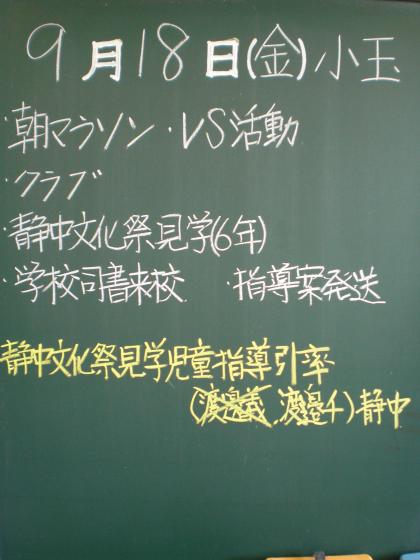 9月18日(金)小玉
・朝マラソン・VS活動
・クラブ
・静中文化祭見学(6年)
・学校司書来校 ・指導案発送
静中文化祭見学児童指導引率
(渡邉義、渡邉千)静中